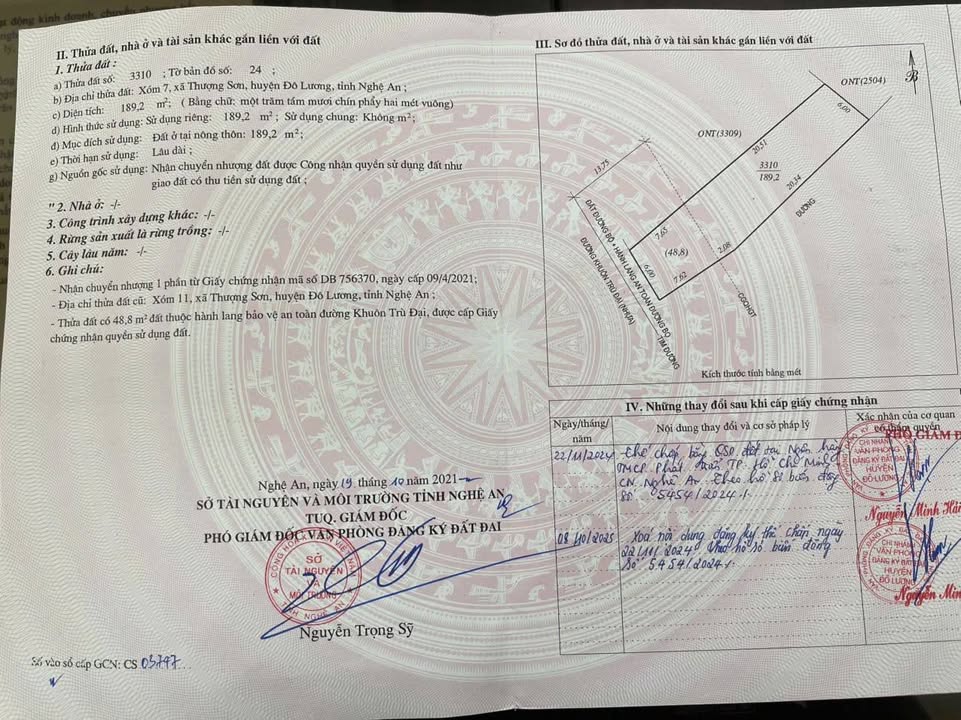 II. Thửa đất, nhà ở và tài sản khác gắn liền với đất
1. Thửa đất :
a) Thửa đất số: 3310 ; Tờ bản đồ số: 24 ;
b) Địa chỉ thửa đất: Xóm 7, xã Thượng Sơn, huyện Đô Lương, tỉnh Nghệ An ;
c) Diện tích: 189,2 m²; ( Bằng chữ: một trăm tám mươi chín phẩy hai mét vuông)
d) Hình thức sử dụng: Sử dụng riêng: 189,2 m² ; Sử dụng chung: Không m²;
đ) Mục đích sử dụng: Đất ở tại nông thôn: 189,2 m² ;
e) Thời hạn sử dụng: Lâu dài ;
g) Nguồn gốc sử dụng: Nhận chuyển nhượng đất được Công nhận quyền sử dụng đất như
giao đất có thu tiền sử dụng đất ;
" 2. Nhà ở: -/-
3. Công trình xây dựng khác: -/-
4. Rừng sản xuất là rừng trồng: -/-
5. Cây lâu năm: -/-
6. Ghi chú:
- Nhận chuyển nhượng 1 phần từ Giấy chứng nhận mã số DB 756370, ngày cấp 09/4/2021;
- Địa chỉ thửa đất cũ: Xóm 11, xã Thượng Sơn, huyện Đô Lương, tỉnh Nghệ An ;
- Thửa đất có 48,8 m² đất thuộc hành lang bảo vệ an toàn đường Khuôn Trù Đại, được cấp Giấy
chứng nhận quyền sử dụng đất.
Nghệ An, ngày 19 tháng 10 năm 2021
SỞ TÀI NGUYÊN VÀ MÔI TRƯỜNG TỈNH NGHỆ AN
TUQ. GIÁM ĐỐC
PHÓ GIÁM ĐỐC VĂN PHÒNG ĐĂNG KÝ ĐẤT ĐAI
SỞ
TÀI NGUYÊN
VÀ
MÔI TRƯỜNG
TỈNH NGHỆ AN
Nguyễn Trọng Sỹ
Số vào sổ cấp GCN: CS 03797
III. Sơ đồ thửa đất, nhà ở và tài sản khác gắn liền với đất
B
ONT(2504)
6,00
ONT(3309)
20,51
3310
189,2
13,75
20,34
ĐƯỜNG
7,65
2,08
(48,8)
6,00
7,62
CGQHGT
ĐẤT ĐƯỜNG BỘ + HÀNH LANG AN TOÀN ĐƯỜNG BỘ
ĐƯỜNG KHUÔN TRÙ ĐẠI (NHỰA)
TIM ĐƯỜNG
Kích thước tính bằng mét
IV. Những thay đổi sau khi cấp giấy chứng nhận
Ngày/tháng/
năm
Nội dung thay đổi và cơ sở pháp lý
Xác nhận của cơ quan
có thẩm quyền
22/11/2024
Thế chấp bằng QSD đất tại Ngân hàng
TMCP Phát triển TP. Hồ Chí Minh
CN Nghệ An theo hồ sơ biến động
số 5454/2024.
PHÓ GIÁM Đ
CHI NHÁNH
VĂN PHÒNG
ĐĂNG KÝ ĐẤT ĐAI
HUYỆN
ĐÔ LƯƠNG
Nguyễn Minh Hải
08/10/2025
Xóa nội dung đăng ký thế chấp ngày
22/11/2024 theo hồ sơ biến động
số 5454/2024.
CHI NHÁNH
VĂN PHÒNG
ĐĂNG KÝ ĐẤT ĐAI
HUYỆN
ĐÔ LƯƠNG
Nguyễn Min